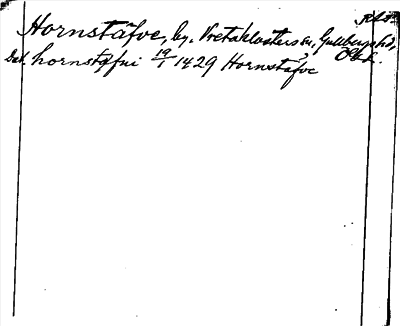 Hornstäfve, by, Vretaklosters sn, Gullbergs hd,
Ög. l.
Dat. hornstäfui 19/1 1429 Hornstäfve